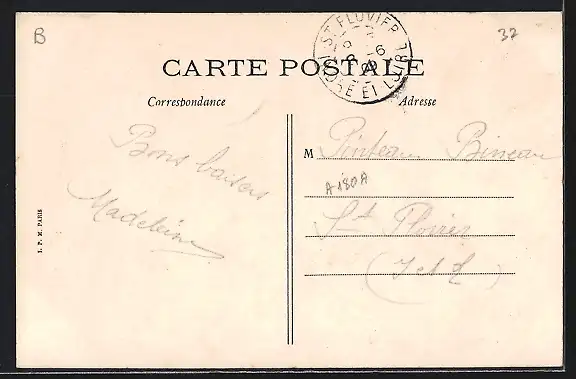 B
37
ST FLOVIER
INDRE ET LOIRE
CARTE POSTALE
Correspondance
Adresse
Bons baisers
Madeleine
M Pinteau Bineau
A180A
St Flovier
(I et L)
I. P. M. PARIS